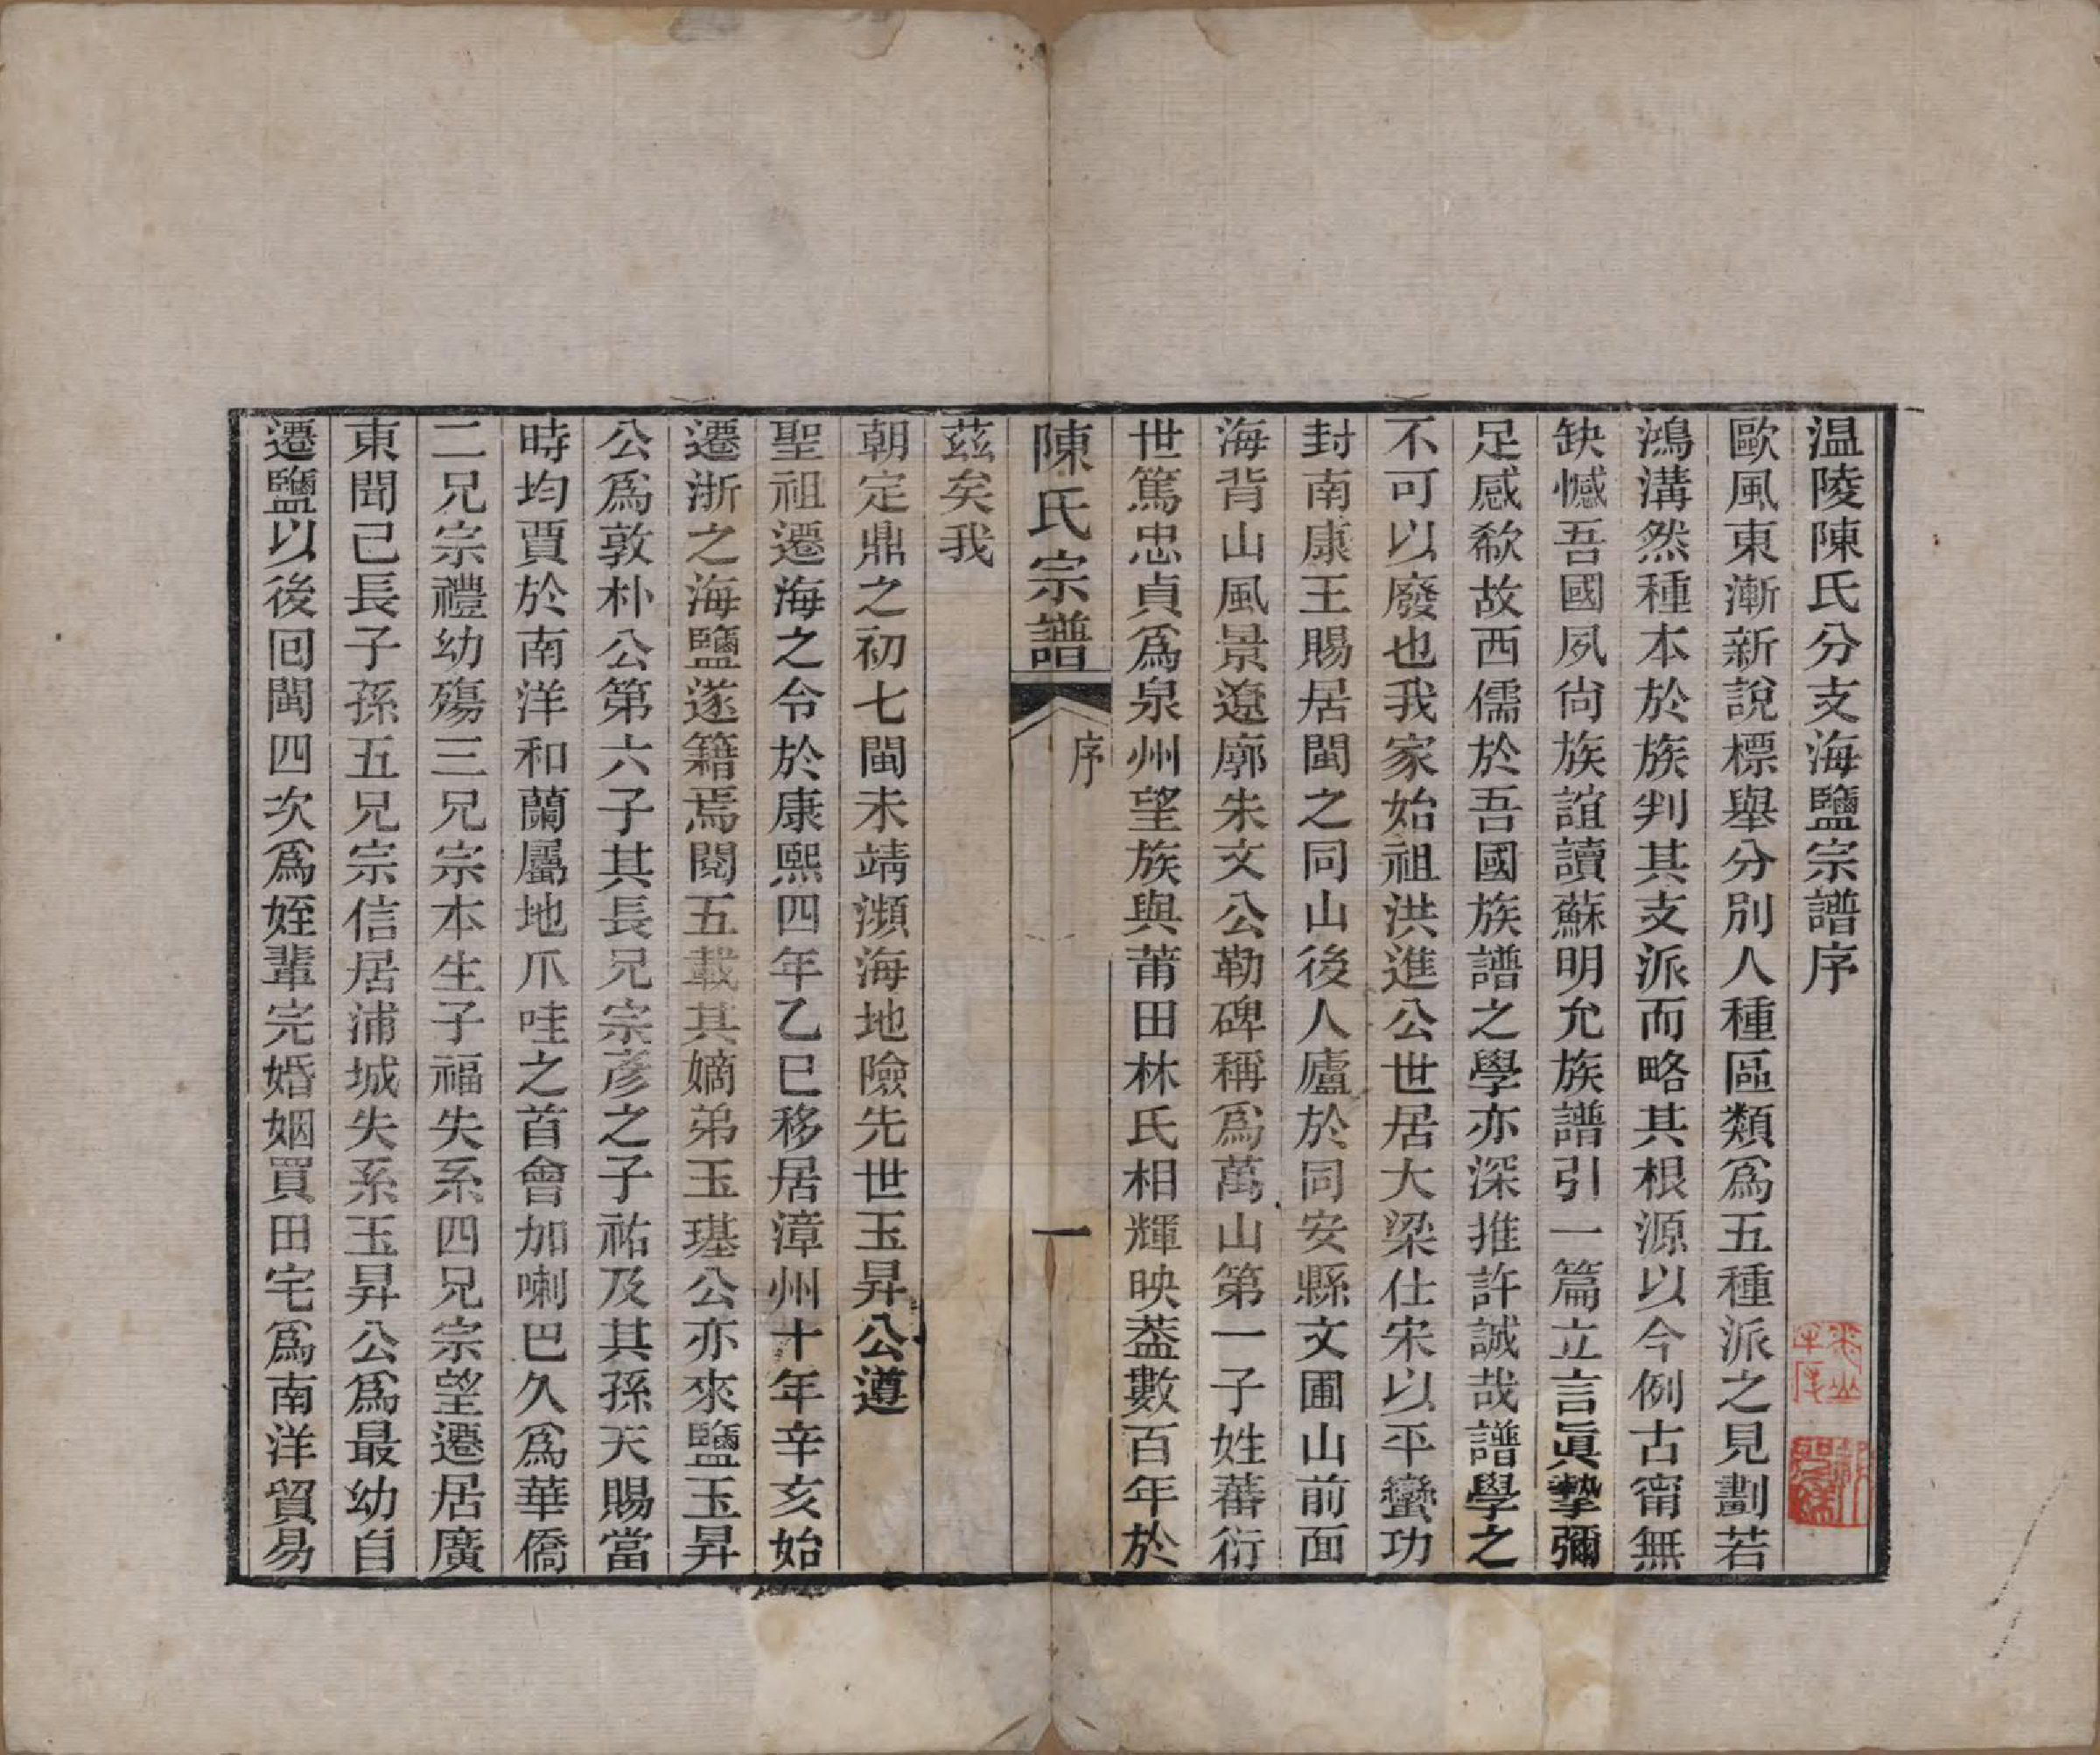 温陵陳氏分支海鹽宗譜序
歐風東漸新說標舉分別人種區類爲五種派之見劃若
鴻溝然種本於族判其支派而略其根源以今例古甯無
缺憾吾國夙尙族誼讀蘇明允族譜引一篇立言眞摯彌
足感欷故西儒於吾國族譜之學亦深推許誠哉譜學之
不可以廢也我家始祖洪進公世居大梁仕宋以平蠻功
封南康王賜居閩之同山後人廬於同安縣文圃山前面
海背山風景遼廓朱文公勒碑稱爲萬山第一子姓蕃衍
世篤忠貞爲泉州望族與莆田林氏相輝映葢數百年於
陳氏宗譜 序 一
茲矣我
朝定鼎之初七閩未靖瀕海地險先世玉昇公遵
聖祖遷海之令於康熙四年乙巳移居漳州十年辛亥始
遷浙之海鹽遂籍焉閱五載其嫡弟玉璂公亦來鹽玉昇
公爲敦朴公第六子其長兄宗彥之子祐及其孫天賜當
時均賈於南洋和蘭屬地爪哇之首會加喇巴久爲華僑
二兄宗禮幼殤三兄宗本生子福失系四兄宗望遷居廣
東聞己長子孫五兄宗信居浦城失系玉昇公爲最幼自
遷鹽以後回閩四次爲姪輩完婚姻買田宅爲南洋貿易